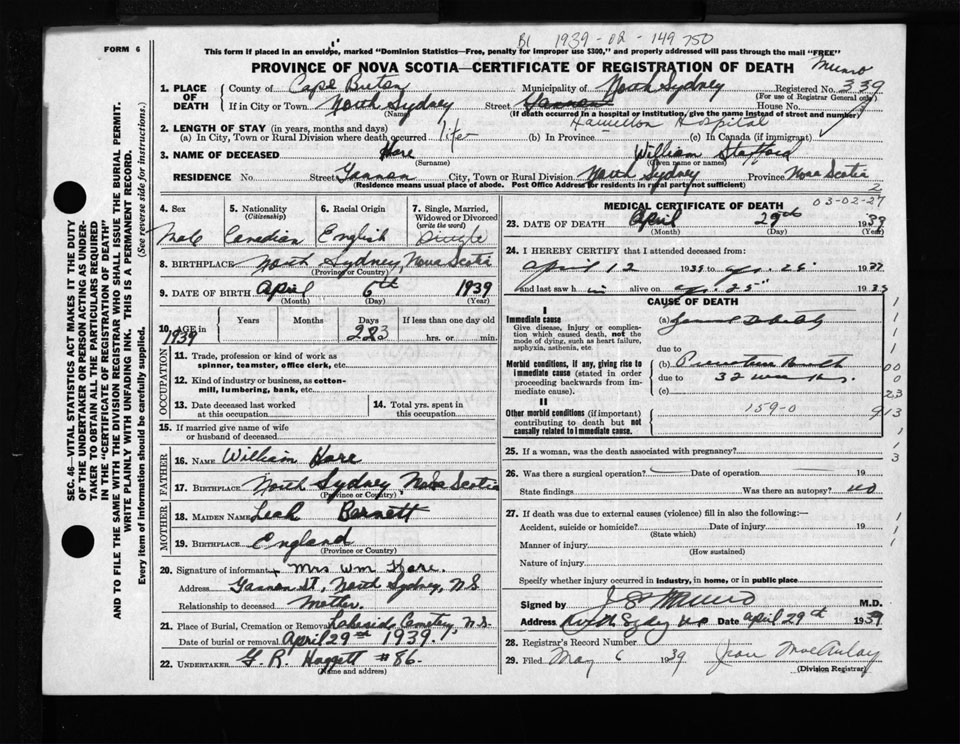 1939-02-149750
FORM 6
This form if placed in an envelope, marked "Dominion Statistics—Free, penalty for improper use $300," and properly addressed will pass through the mail "FREE"
PROVINCE OF NOVA SCOTIA—CERTIFICATE OF REGISTRATION OF DEATH
Munro
1. PLACE OF DEATH
County of Cape Breton Municipality of North Sydney Registered No. 339
(For use of Registrar General only)
If in City or Town North Sydney Street Gannon House No.
(Name) (If death occurred in a hospital or institution, give name instead of street and number)
Hamilton Hospital
2. LENGTH OF STAY (in years, months and days)
(a) In City, Town or Rural Division where death occurred life (b) In Province (c) In Canada (if immigrant)
3. NAME OF DECEASED Hare William Stafford
(Surname) (Given name or names)
RESIDENCE No. Street Gannon City, Town or Rural Division North Sydney Province Nova Scotia
(Residence means usual place of abode. Post Office Address for residents in rural parts not sufficient)
2
03-02-27
4. Sex 5. Nationality (Citizenship) 6. Racial Origin 7. Single, Married, Widowed or Divorced (write the word)
Male Canadian English Single
8. BIRTHPLACE North Sydney, Nova Scotia
(Province or Country)
9. DATE OF BIRTH April 6th 1939
(Month) (Day) (Year)
10. AGE in Years Months Days If less than one day old
1939 223 hrs. or min.
OCCUPATION
11. Trade, profession or kind of work as spinner, teamster, office clerk, etc.
12. Kind of industry or business, as cotton-mill, lumbering, bank, etc.
13. Date deceased last worked at this occupation
14. Total yrs. spent in this occupation
15. If married give name of wife or husband of deceased
FATHER
16. NAME William Hare
17. BIRTHPLACE North Sydney, Nova Scotia
(Province or Country)
MOTHER
18. MAIDEN NAME Leah Barnett
19. BIRTHPLACE England
(Province or Country)
20. Signature of informant Mrs Wm Hare.
Address Gannon St, North Sydney, N.S
Relationship to deceased Mother.
21. Place of Burial, Cremation or Removal Lakeside Cemetery, N.S.
Date of burial or removal April 29th 1939.
22. UNDERTAKER G. R. Haggett #86.
(Name and address)
MEDICAL CERTIFICATE OF DEATH
23. DATE OF DEATH April 29th 1939
(Month) (Day) (Year)
24. I HEREBY CERTIFY that I attended deceased from:
April 12 1939 to 19
and last saw h im alive on 1939
CAUSE OF DEATH
I
Immediate cause
Give disease, injury or complication which caused death, not the mode of dying, such as heart failure, asphyxia, asthenia, etc
(a) General Debility
due to
Morbid conditions, if any, giving rise to immediate cause (stated in order proceeding backwards from immediate cause).
(b) Premature Birth
due to 32 weeks.
(c)
II
Other morbid conditions (if important) contributing to death but not causally related to immediate cause.
159-0
25. If a woman, was the death associated with pregnancy?
26. Was there a surgical operation? Date of operation 19
State findings Was there an autopsy? no
27. If death was due to external causes (violence) fill in also the following:—
Accident, suicide or homicide? Date of injury 19
(State which)
Manner of injury
(How sustained)
Nature of injury
Specify whether injury occurred in industry, in home, or in public place
Signed by Munro M.D.
Address North Sydney N.S Date April 29th 1939
28. Registrar's Record Number
29. Filed May 6 1939 Jean MacAulay
(Division Registrar)
SEC. 46—VITAL STATISTICS ACT MAKES IT THE DUTY
OF THE UNDERTAKER OR PERSON ACTING AS UNDERTAKER TO OBTAIN ALL THE PARTICULARS REQUIRED
IN THE "CERTIFICATE OF REGISTRATION OF DEATH"
AND TO FILE THE SAME WITH THE DIVISION REGISTRAR WHO SHALL ISSUE THE BURIAL PERMIT.
WRITE PLAINLY WITH UNFADING INK. THIS IS A PERMANENT RECORD.
Every item of Information should be carefully supplied.
(See reverse side for instructions.)